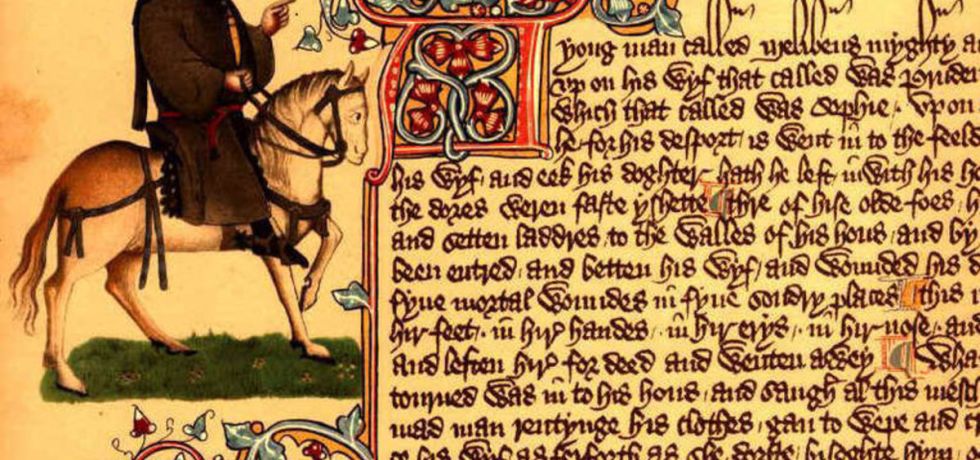 A
yong man called melibeus myghty a
vp on his wyf that called was Pruden
which that called was Sophie vpon
he for his desport is went in to the feel
his wyf and eek his doghter hath he left inwith his h
the dores weren faste yshette thre of hise olde foes h
and setten laddres to the walles of his hous and by
been entred and betten his wyf and wounded his d
fyue mortal woundes in fyue sondry places this i
hir feet in hir handes in hir erys in hir nose an
and leften hir for deed and wenten awey Whan
tourned was in to his hous and saugh al this mesch
mad man rentynge his clothes gan to wepe and c
his wyf as ferforth as she dorste bisoghte hym